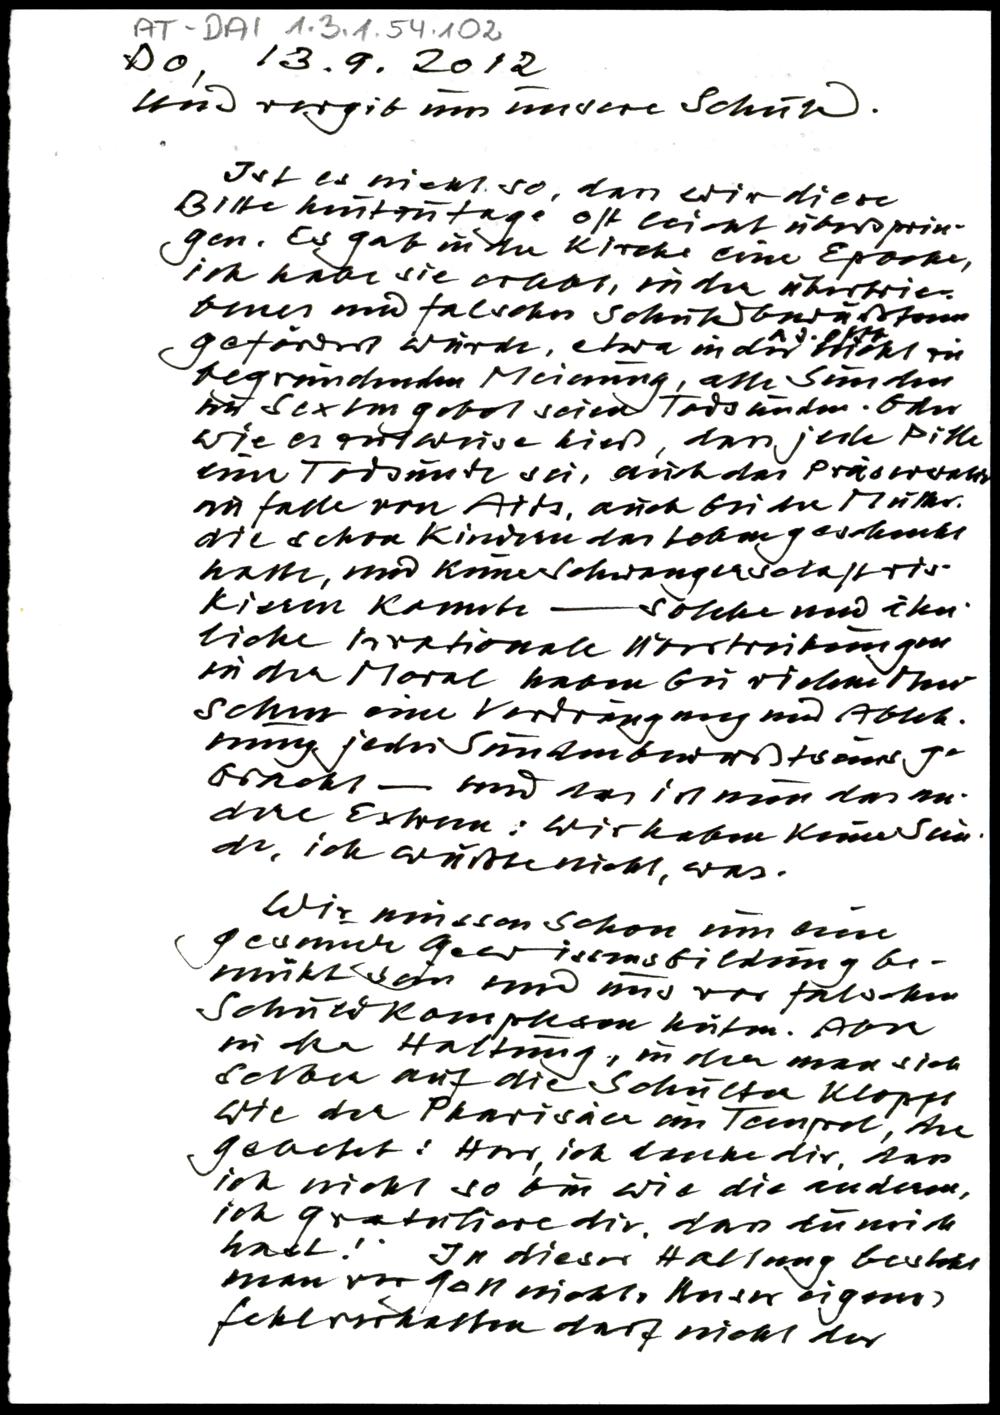 AT-DAI 1.3.1.54.102
Do, 13.9.2012
Und vergib uns unsere Schuld.
Ist es nicht so, dass wir diese
Bitte heutzutage oft leicht übersprin-
gen. Es gab in der Kirche eine Epoche,
ich habe sie erlebt, in der übertrie-
benes und falsches Schuldbewußtsein
gefördert wurde, etwa in der nicht zu
begründenden Meinung, alle Sünden
im Sexten gebot seien Todsünden. Oder
wie es zeitweise hieß, dass jede Pille
eine Todsünde sei, auch das Präservativ
im Falle von Aids, auch bei der Mutter.
die schon Kindern das Leben geschenkt
hatte, und keine Schwangerschaft ris-
kieren konnte — solche und ähn-
liche irrationale Übertreibungen
in der Moral haben bei vielen Men
schen eine Verdrängung und Ableh-
nung jedes Sündenbewußtseins ge-
bracht — und das ist nun das an-
dere Extrem: Wir haben keine Sün-
de, ich wüßte nicht, was.
Wir müssen schon um eine
gesunde Gewissensbildung be-
müht sein und uns vor falschen
Schuldkomplexen hüten. Aber
in der Haltung, in der man sich
selber auf die Schulter klopft
wie der Pharisäer im Tempel, der
gebetet: Herr, ich danke dir, dass
ich nicht so bin wie die anderen,
ich gratuliere dir, dass du mich
hast! In dieser Haltung besteht
man vor Gott nicht. Unser eigenes
Fehlverhalten darf nicht der